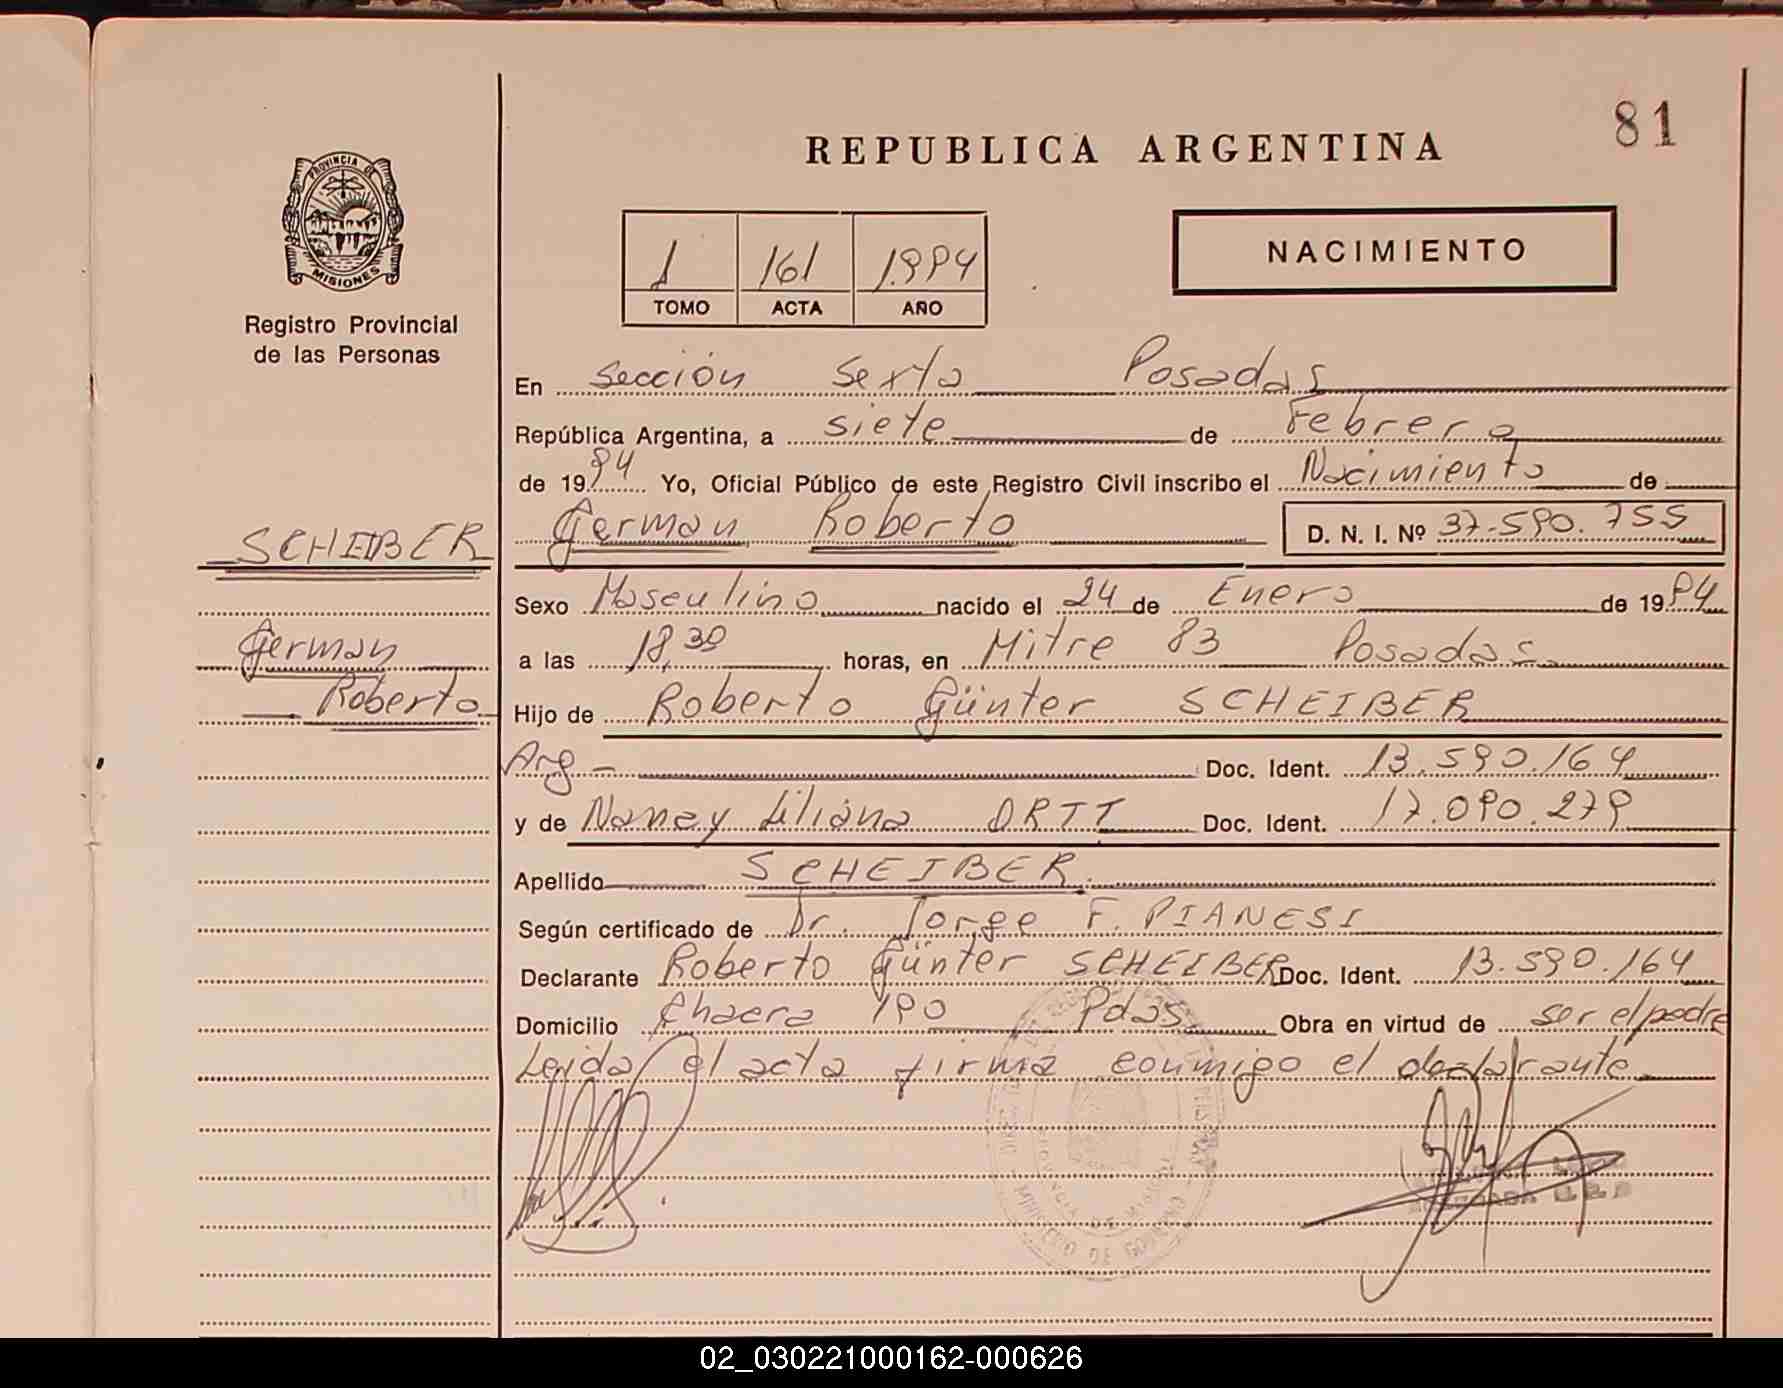 81
REPUBLICA ARGENTINA
PROVINCIA DE
MISIONES
Registro Provincial
de las Personas
1 161 1994
TOMO ACTA AÑO
NACIMIENTO
En Sección Sexta Posadas
República Argentina, a siete de Febrero
de 1994 Yo, Oficial Público de este Registro Civil inscribo el Nacimiento de
German Roberto D. N. I. Nº 37.590.755
SCHEIBER
Sexo Masculino nacido el 24 de Enero de 1994
German
a las 18,30 horas, en Mitre 83 Posadas
Roberto
Hijo de Roberto Günter SCHEIBER
Arg - Doc. Ident. 13.590.164
y de Nancy Liliana ORTT Doc. Ident. 17.090.279
Apellido SCHEIBER.
Según certificado de Dr. Jorge F. PIANESI
Declarante Roberto Günter SCHEIBER Doc. Ident. 13.590.164
Domicilio Chacra 190 Pdas. Obra en virtud de ser el padre
Leida el acta firma conmigo el declarante
MINISTERIO DE GOBIERNO
PROVINCIA DE MISIONES
02_030221000162-000626